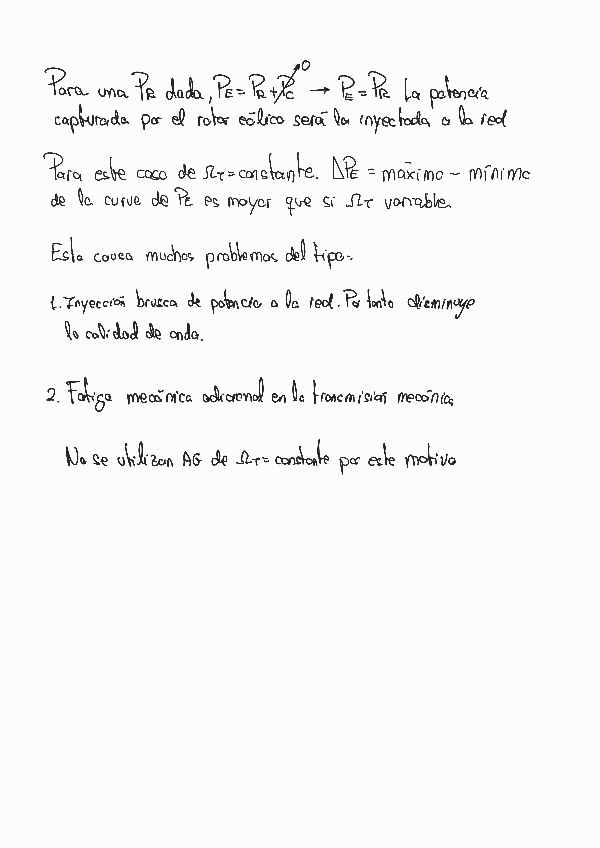 Para una PR dada, PE = PR + PC → 0 → PE = PR La potencia
capturada por el rotor eólico será la inyectada a la red
Para este caso de ΩT = constante. ΔPE = máximo - mínimo
de la curva de PE es mayor que si ΩT variable.
Esto causa muchos problemas del tipo-
1. Inyección brusca de potencia a la red. Por tanto disminuye
la calidad de onda.
2. Fatiga mecánica adicional en la transmisión mecánica
No se utilizan AG de ΩT = constante por este motivo